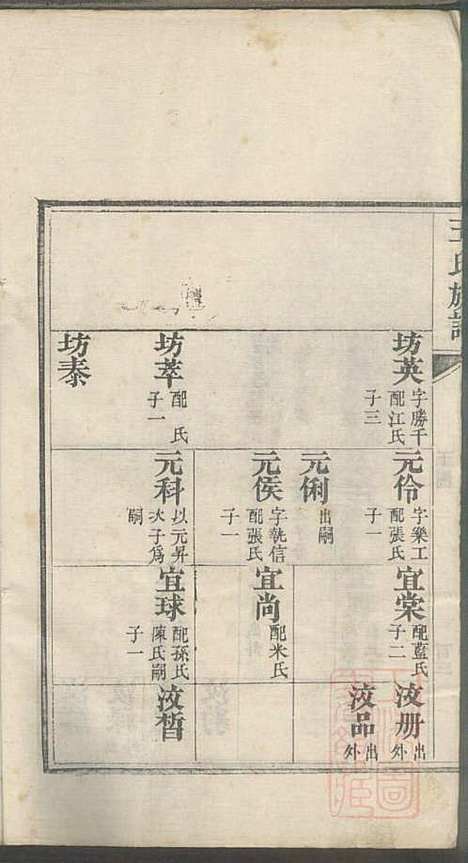 王氏族譜
坊英
字勝千
配江氏
子三
坊萃
配 氏
子一
坊泰
元伶
字樂工
配張氏
子一
元俐
出嗣
元侯
字執信
配張氏
子一
元科
以元昇
次子為
嗣
宜棠
配藍氏
子二
宜尚
配米氏
宜球
配孫氏
陳氏嗣
子一
汝册
出外
汝品
出外
汝皙